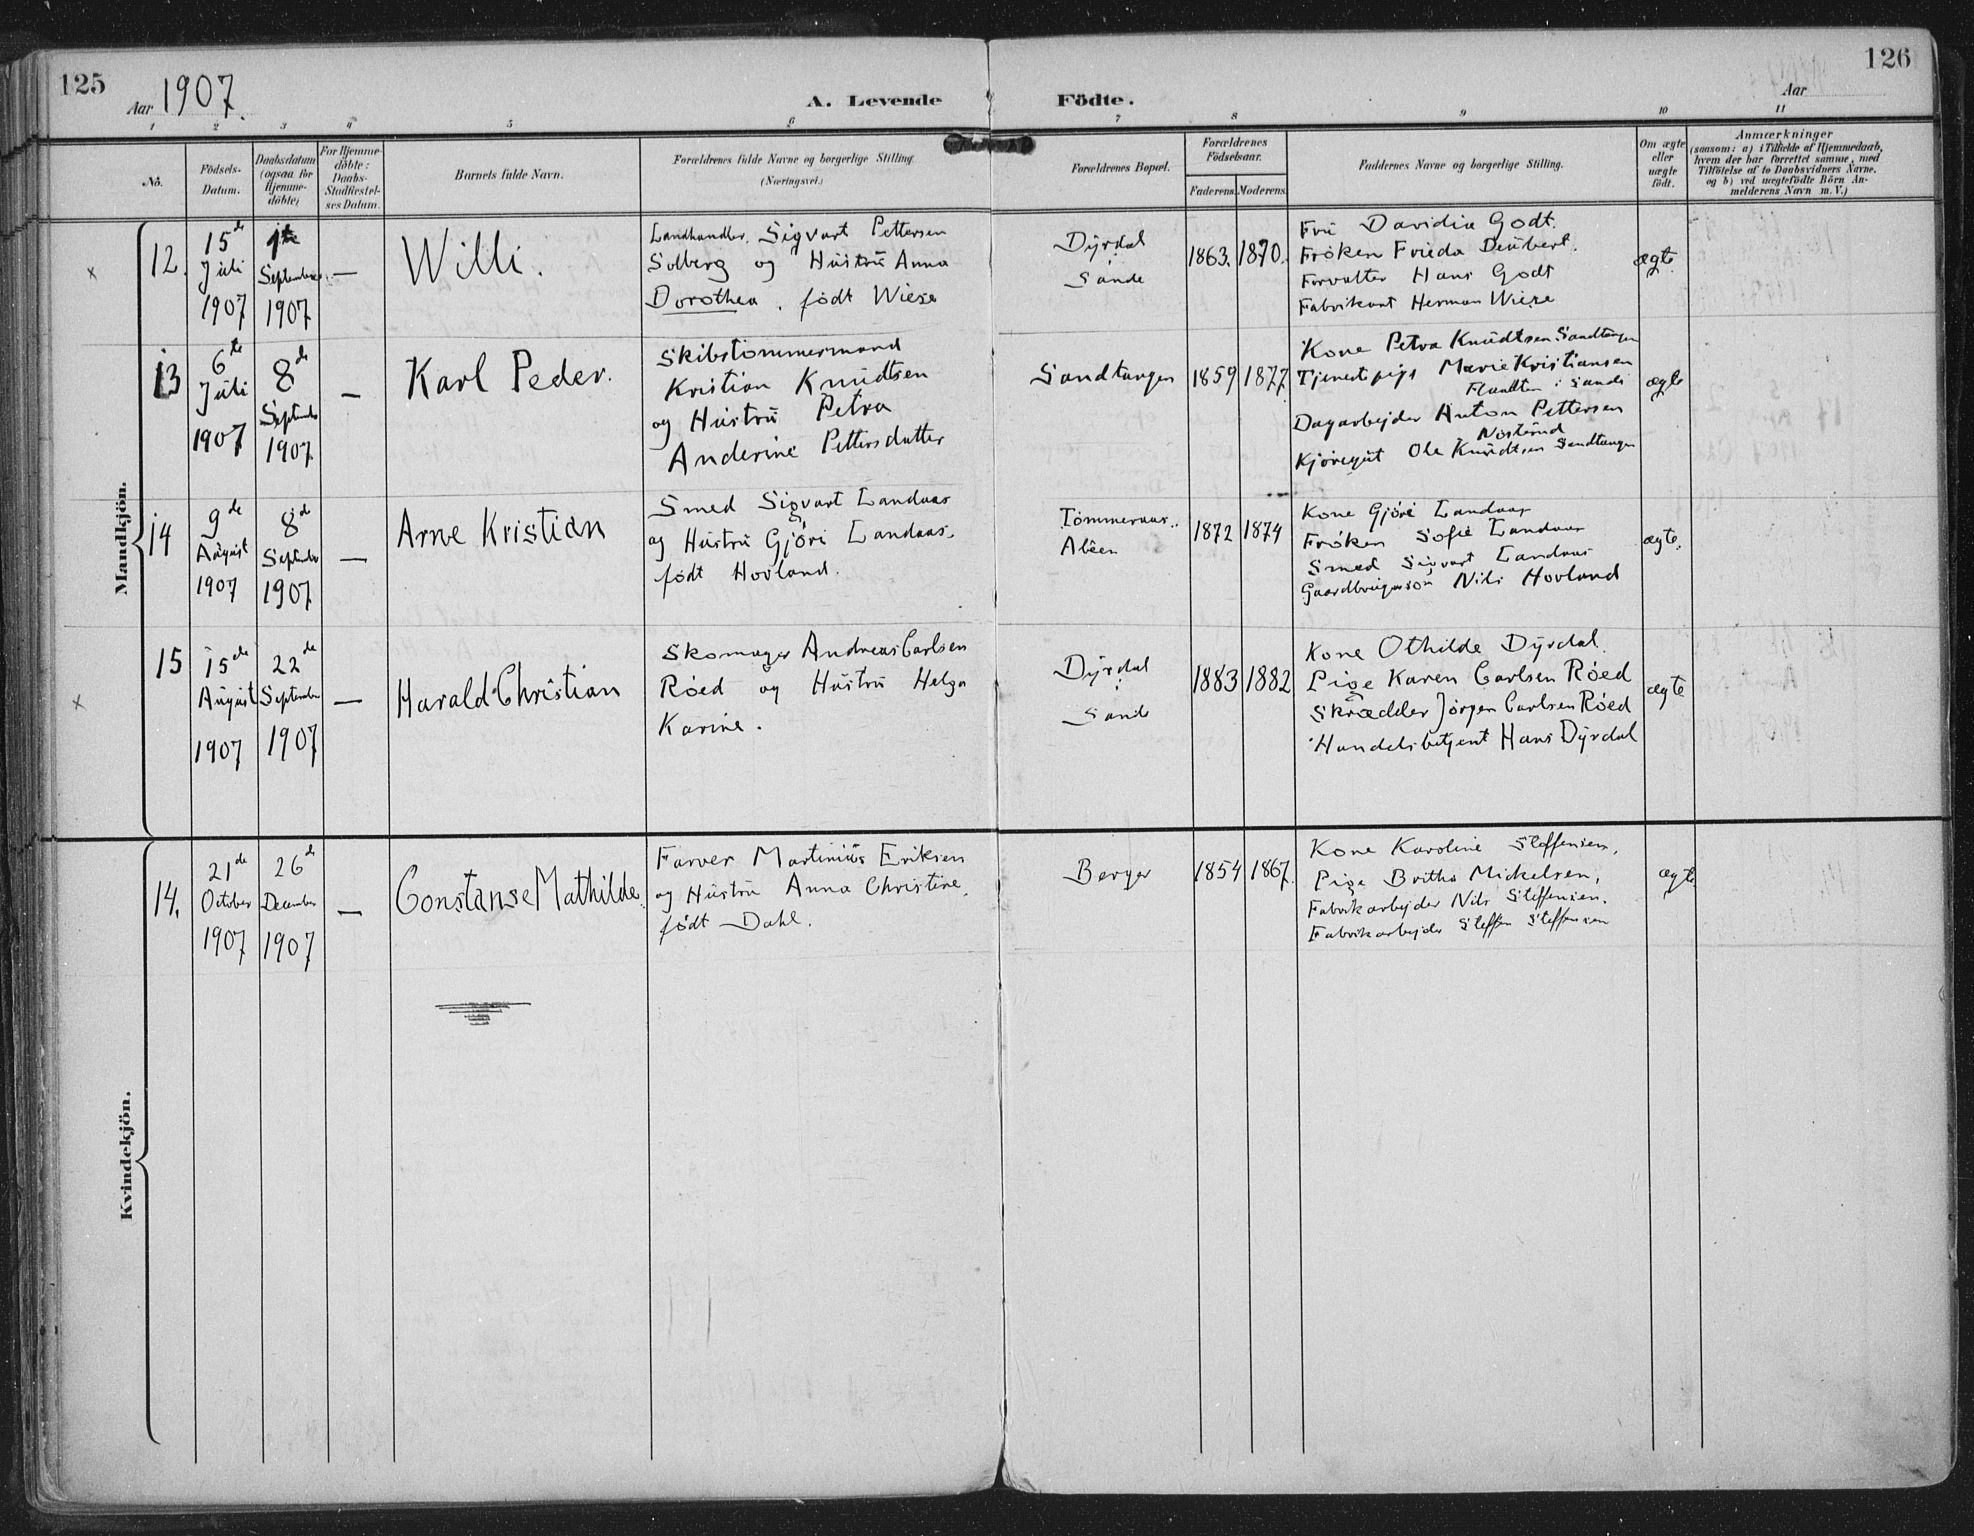 125
Aar 1907.
A. Levende
Födte.
126
Aar
1
2
3
4
5
6
7
8
9
10
11
No.
Födsels-Datum.
Daabsdatum (ogsaa for Hjemme-döbte)
For Hjemme-döbte: Daabs-Stadfæstel-ses Datum.
Barnets fulde Navn.
Forældrenes fulde Navne og borgerlige Stilling.
(Næringsvei.)
Forældrenes Bopæl.
Forældrenes Födselsaar.
Faderens.
Moderens.
Faddernes Navne og borgerlige Stilling.
Om ægte eller uægte født.
Anmærkninger
(saasom: a) i Tilfælde af Hjemmedaab,
hvem der har forrettet samme, med
Tilföielse af to Daabsvidners Navne.
og b) ved uægtefödte Börn An-
melderens Navn m. V.)
Mandkjön.
x
12.
15de Juli 1907
1ste September 1907
—
Willi.
Landhandler. Sigvart Pettersen
Solberg og Hustru Anna
Dorothea, født Wiese
Dyrdal
i
Sande
1863.
1870.
Fru Davidia Godt.
Frøken Frieda Deubert.
Forvalter Hans Godt
Fabrikant Herman Wiese
ægte
13
6te Juli 1907
8de September 1907
—
Karl Peder.
Skibstømmermand
Kristian Knudtsen
og Hustru Petra
Anderine Pettersdatter
Sandtangen
1859
1877.
Kone Petra Knudtsen Sandtangen
Tjenestepige Marie Kristiansen
i Sande
Dagarbejder Anton Pettersen
Nøsterud
Kjøregut Ole Knudtsen Sandtangen
ægte
14
9de August 1907
8d September 1907
—
Arne Kristian
Smed Sigvart Landaas
og Hustru Gjøri Landaas.
født Hovland.
Tømmeraas..
Aleen
1872
1874
Kone Gjøri Landaas
Frøken Sofie Landaas
Smed Sigvart Landaas
Gaardbrugersøn Nils Hovland
ægte.
x
15
15de August 1907
22de September 1907
—
Harald Christian
Skomager Andreas Carlsen
Røed og Hustru Helga
Karine.
Dyrdal
i
Sande
1883
1882
Kone Othilde Dyrdal.
Pige Karen Carlsen Røed
Skrædder Jörgen Carlsen Røed
Handelsbetjent Hans Dyrdal
ægte
Kvindekjön.
14.
21de October 1907
26d December 1907
—
Constanse Mathilde.
Farver Martinius Eriksen
og Hustru Anna Christine,
født Dahl.
Berger
1854
1867.
Kone Karoline Steffensen,
Pige Britha Mickelsen,
Fabrikarbejder Nils Steffensen.
Fabrikarbejder Steffen Steffensen
ægte